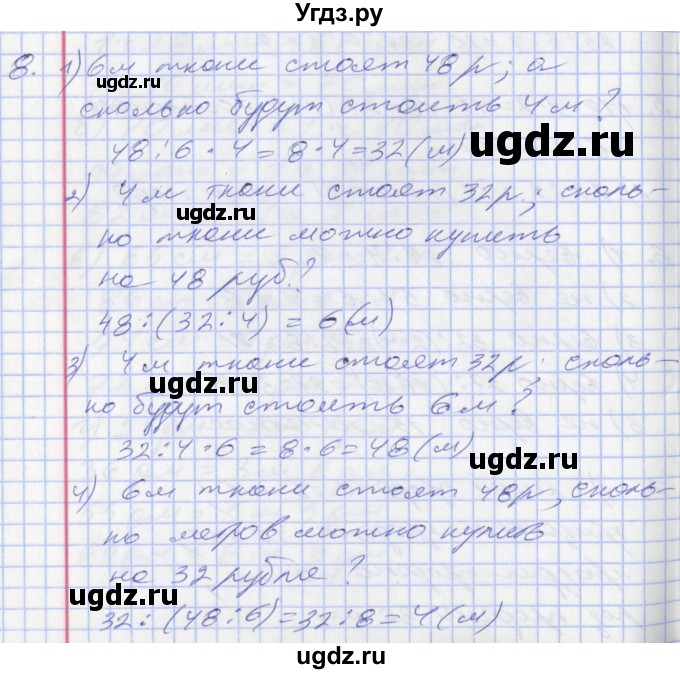 Угдз.ру
8. 1) 6м ткани стоят 48 р; а
сколько будут стоить 4 м?
48:6·4=8·4=32(м)
2) 4м ткани стоят 32р; сколь-
ко ткани можно купить
на 48 руб.?
48:(32:4) = 6(м)
3) 4м ткани стоят 32р; сколь-
ко будут стоить 6м?
32:4·6=8·6=48(м)
4) 6м ткани стоят 48р, сколь-
ко метров можно купить
на 32 рубля?
32:(48:6)=32:8=4(м)
ugdz.ru
ugdz.ru
ugdz.ru
ugdz.ru
ugdz.ru
ugdz.ru
ugdz.ru
ugdz.ru
ugdz.ru
ugdz.ru
ugdz.ru